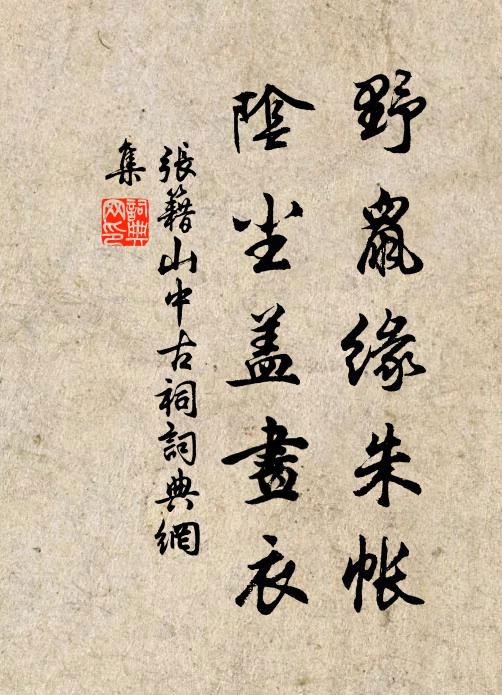 野鼠緣朱帳
陰尘盖畫衣
張籍山中古祠詞典網
集
詞典
网印